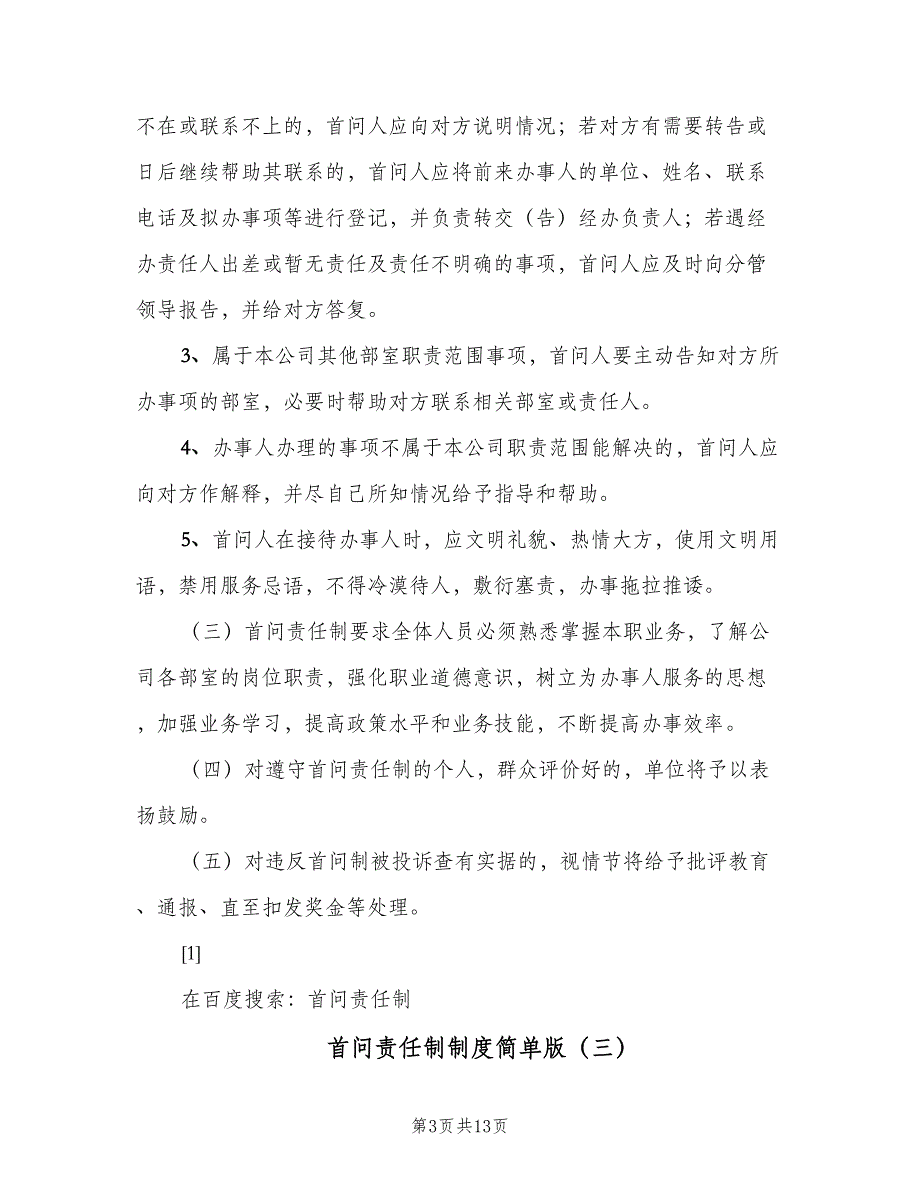 不在或联系不上的，首问人应向对方说明情况；若对方有需要转告或
日后继续帮助其联系的，首问人应将前来办事人的单位、姓名、联系
电话及拟办事项等进行登记，并负责转交（告）经办负责人；若遇经
办责任人出差或暂无责任及责任不明确的事项，首问人应及时向分管
领导报告，并给对方答复。
3、属于本公司其他部室职责范围事项，首问人要主动告知对方所
办事项的部室，必要时帮助对方联系相关部室或责任人。
4、办事人办理的事项不属于本公司职责范围能解决的，首问人应
向对方作解释，并尽自己所知情况给予指导和帮助。
5、首问人在接待办事人时，应文明礼貌、热情大方，使用文明用
语，禁用服务忌语，不得冷漠待人，敷衍塞责，办事拖拉推诿。
（三）首问责任制要求全体人员必须熟悉掌握本职业务，了解公
司各部室的岗位职责，强化职业道德意识，树立为办事人服务的思想
，加强业务学习，提高政策水平和业务技能，不断提高办事效率。
（四）对遵守首问责任制的个人，群众评价好的，单位将予以表
扬鼓励。
（五）对违反首问制被投诉查有实据的，视情节将给予批评教育
、通报、直至扣发奖金等处理。
[1]
在百度搜索：首问责任制
首问责任制制度简单版（三）
第3页共13页